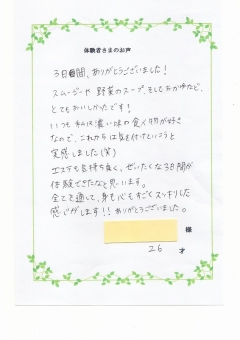 体験者さまのお声
3日間、ありがとうございました！
スムージーや野菜のスープ、そしておかゆなど、
とてもおいしかったです！
いつも私は濃い味の食べ物が好き
なので、これからは気を付けていこうと
実感しました(笑)
エステも気持ち良く、ぜいたくな3日間が
体験できたなと思います。
全てを通して、身も心もすごくスッキリした
感じがします！！ありがとうございました。
様
26 才